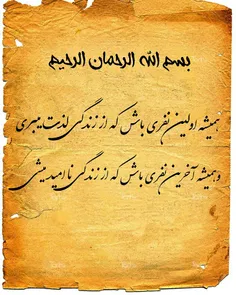 بسم الله الرحمان الرحیم
همیشه اولین نفری باش که از زندگی لذت میبری
وهمیشه آخرین نفری باش که از زندگی ناامید میشی